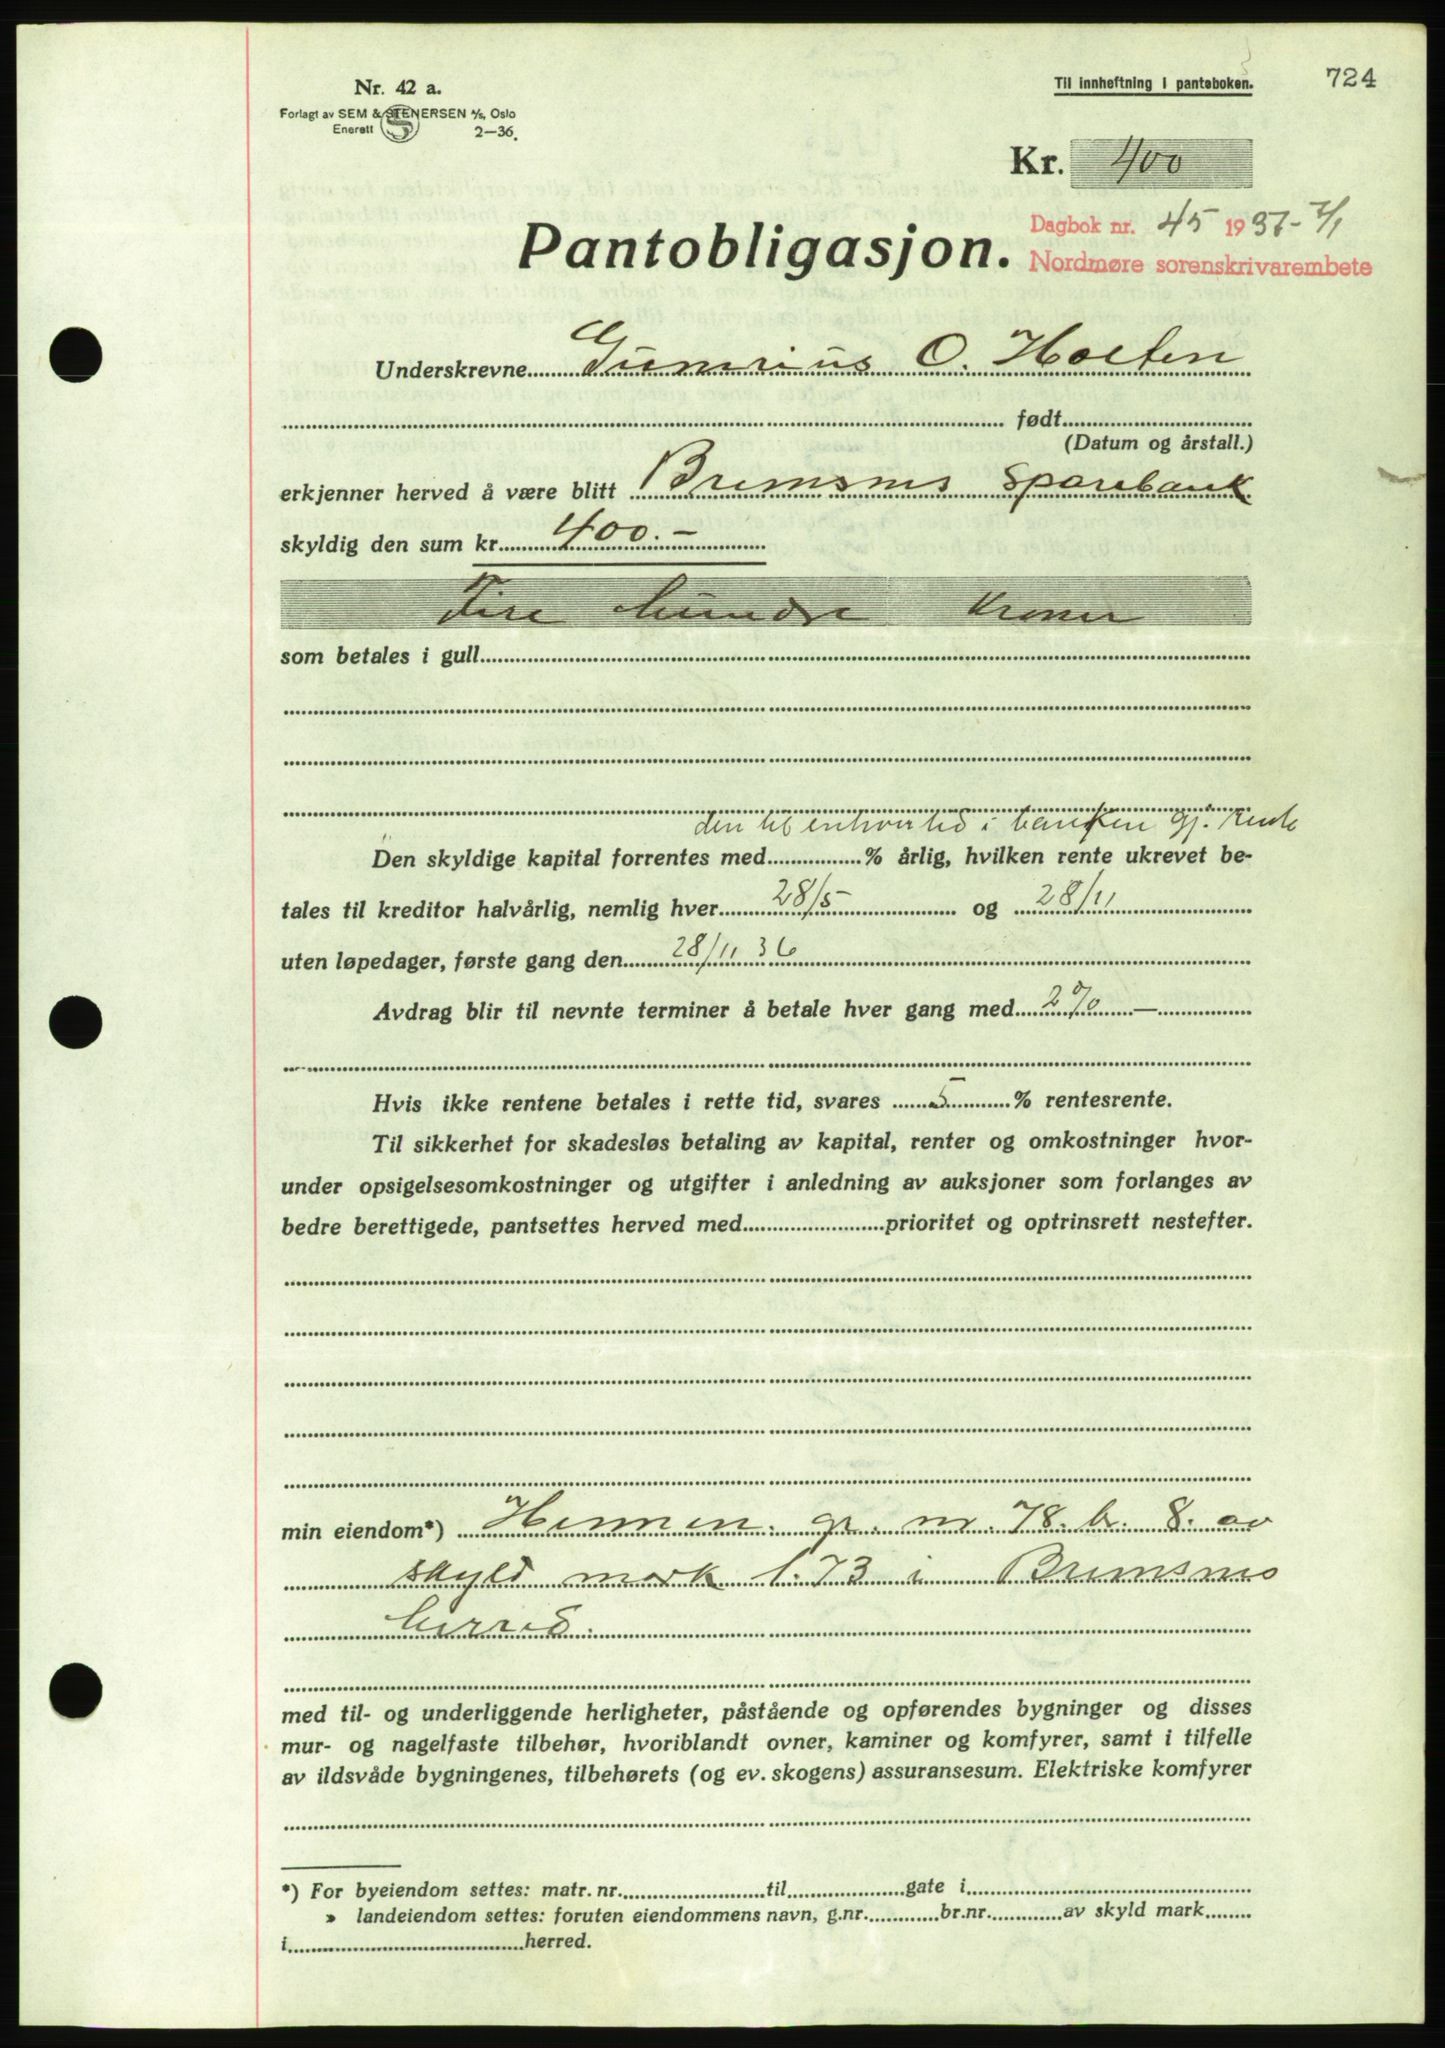 Nr. 42 a.
Forlagt av SEM & STENERSEN A/S, Oslo
Enerett 2—36.
Til innheftning i panteboken.
724
Kr. 400
Pantobligasjon.
Dagbok nr. 45 1937 - 7/1
Nordmøre sorenskrivarembete
Underskrevne O. Holten
født
(Datum og årstall.)
erkjenner herved å være blitt Bremsnes Sparebank
skyldig den sum kr. 400.-
Fire hundre Kroner
som betales i gull
den til enhver tid i banken gj. rente
Den skyldige kapital forrentes med % årlig, hvilken rente ukrevet be-
tales til kreditor halvårlig, nemlig hver 28/5 og 28/11
uten løpedager, første gang den 28/11 36
Avdrag blir til nevnte terminer å betale hver gang med 2% —
Hvis ikke rentene betales i rette tid, svares 5 % rentesrente.
Til sikkerhet for skadesløs betaling av kapital, renter og omkostninger hvor-
under opsigelsesomkostninger og utgifter i anledning av auksjoner som forlanges av
bedre berettigede, pantsettes herved med prioritet og optrinsrett nestefter.
min eiendom*) gr. nr. 78. br. 8. av
skyld mark 1.73 i Bremsnes
herred.
med til- og underliggende herligheter, påstående og opførendes bygninger og disses
mur- og nagelfaste tilbehør, hvoriblandt ovner, kaminer og komfyrer, samt i tilfelle
av ildsvåde bygningenes, tilbehørets (og ev. skogens) assuransesum. Elektriske komfyrer
*) For byeiendom settes: matr. nr. til gate i
» landeiendom settes: foruten eiendommens navn, g.nr. br.nr. av skyld mark
i herred.